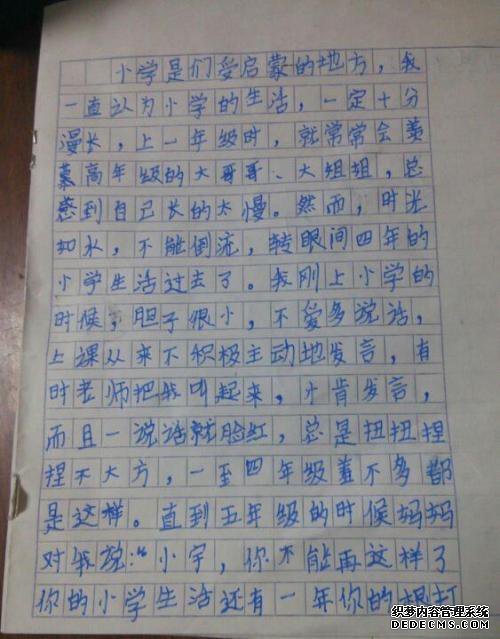 小学是们受启蒙的地方，我
一直认为小学的生活，一定十分
漫长，上一年级时，就常常会羡
慕高年级的大哥哥、大姐姐，总
感到自己长的太慢。然而，时光
如水，不能倒流，转眼间四年的
小学生活过去了。我刚上小学的
时候，胆子很小，不爱多说话，
上课从来不积极主动地发言，有
时老师把我叫起来，才肯发言，
而且一说话就脸红，总是扭扭捏
捏不大方，一至四年级差不多都
是这样。直到五年级的时候妈妈
对我说：“小宇，你不能再这样了
你的小学生活还有一年你的
织梦内容管理系统
DEDECMS.COM